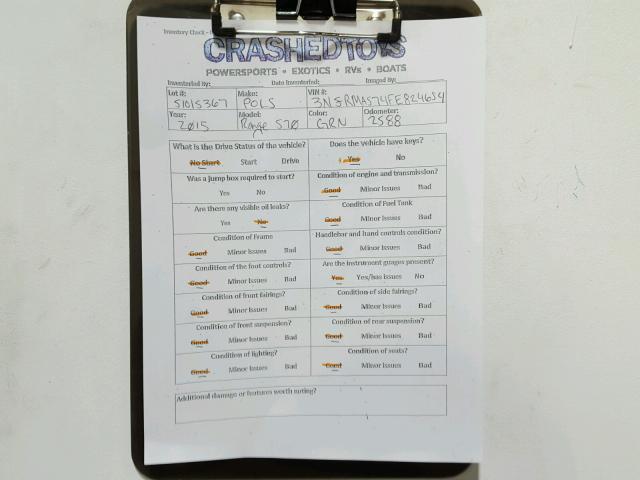 CRASHEDTOYS
POWERSPORTS • EXOTICS • RVs • BOATS
Inventoried By: Date Inventoried: Imaged By:
Lot #: Make: VIN #:
51015367 POLS
Year: Model: Color: Odometer:
2015 Range 570 GRN 2588
What is the Drive Status of the vehicle? Does the vehicle have keys?
No Start Start Drive Yes No
Was a jump box required to start? Condition of engine and transmission?
Yes No Good Minor Issues Bad
Are there any visible oil leaks? Condition of Fuel Tank
Yes No Good Minor Issues Bad
Condition of Frame Handlebar and hand controls condition?
Good Minor Issues Bad Good Minor Issues Bad
Condition of the foot controls? Are the instrument guages present?
Good Minor Issues Bad Yes Yes/has issues No
Condition of front fairings? Condition of side fairings?
Good Minor Issues Bad Good Minor Issues Bad
Condition of front suspension? Condition of rear suspension?
Good Minor Issues Bad Good Minor Issues Bad
Condition of lighting? Condition of seats?
Good Minor Issues Bad Good Minor Issues Bad
Additional damage or features worth noting?